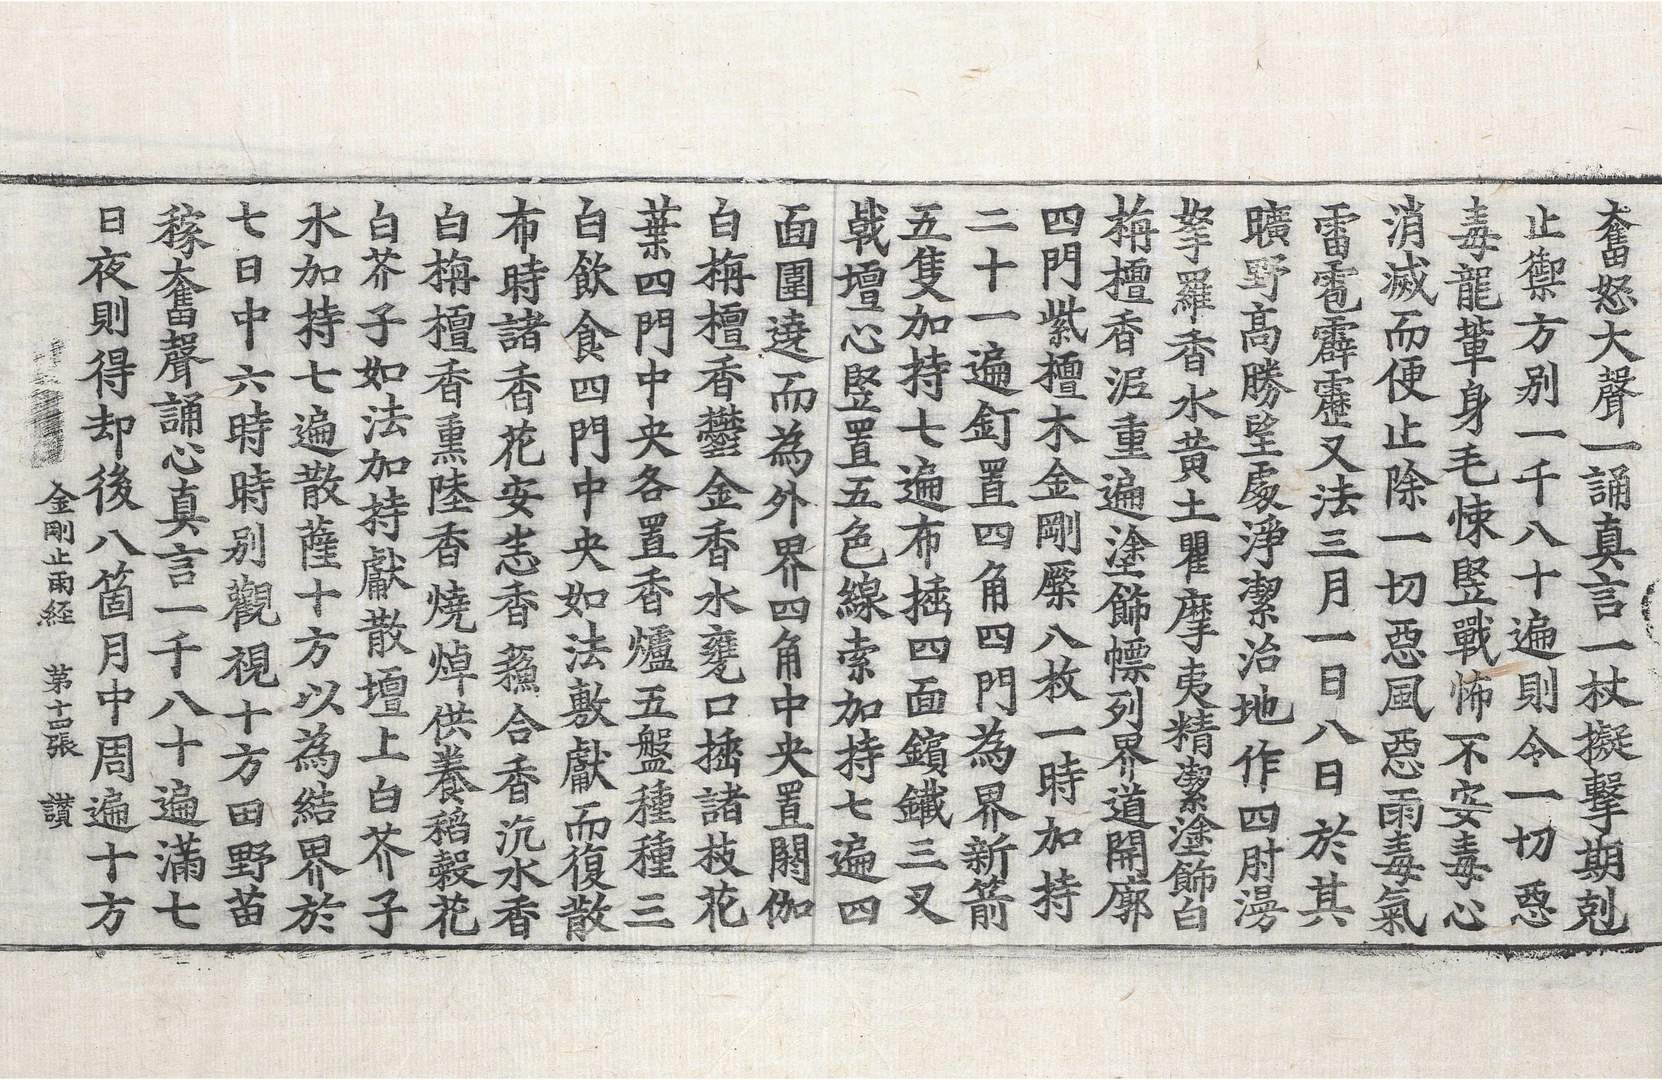 奮怒大聲一誦真言一杖擬擊期剋
止禦方別一千八十遍則令一切惡
毒龍輩身毛悚竪戰怖不安毒心
消滅而便止除一切惡風惡雨毒氣
雷雹霹靂又法三月一日八日於其
曠野高勝堅處淨潔治地作四肘漫
拏羅香水黄土瞿摩夷精潔塗飾白
栴檀香泥重遍塗飾幖列界道開廓
四門紫檀木金剛橛八枚一時加持
二十一遍釘置四角四門為界新箭
五隻加持七遍布插四面鑌鐵三叉
戟壇心竪置五色線索加持七遍四
面圍遶而為外界四角中央置閼伽
白栴檀香欝金香水甕口插諸枝花
葉四門中央各置香爐五盤種種三
白飲食四門中央如法敷獻而復散
布時諸香花安悉香蘓合香沉水香
白栴檀香熏陸香燒焯供養稻穀花
白芥子如法加持獻散壇上白芥子
水加持七遍散灑十方以為結界於
七日中六時時別觀視十方田野苗
稼奮聲誦心真言一千八十遍滿七
日夜則得却後八箇月中周遍十方
金剛止雨経 第十四張 讃